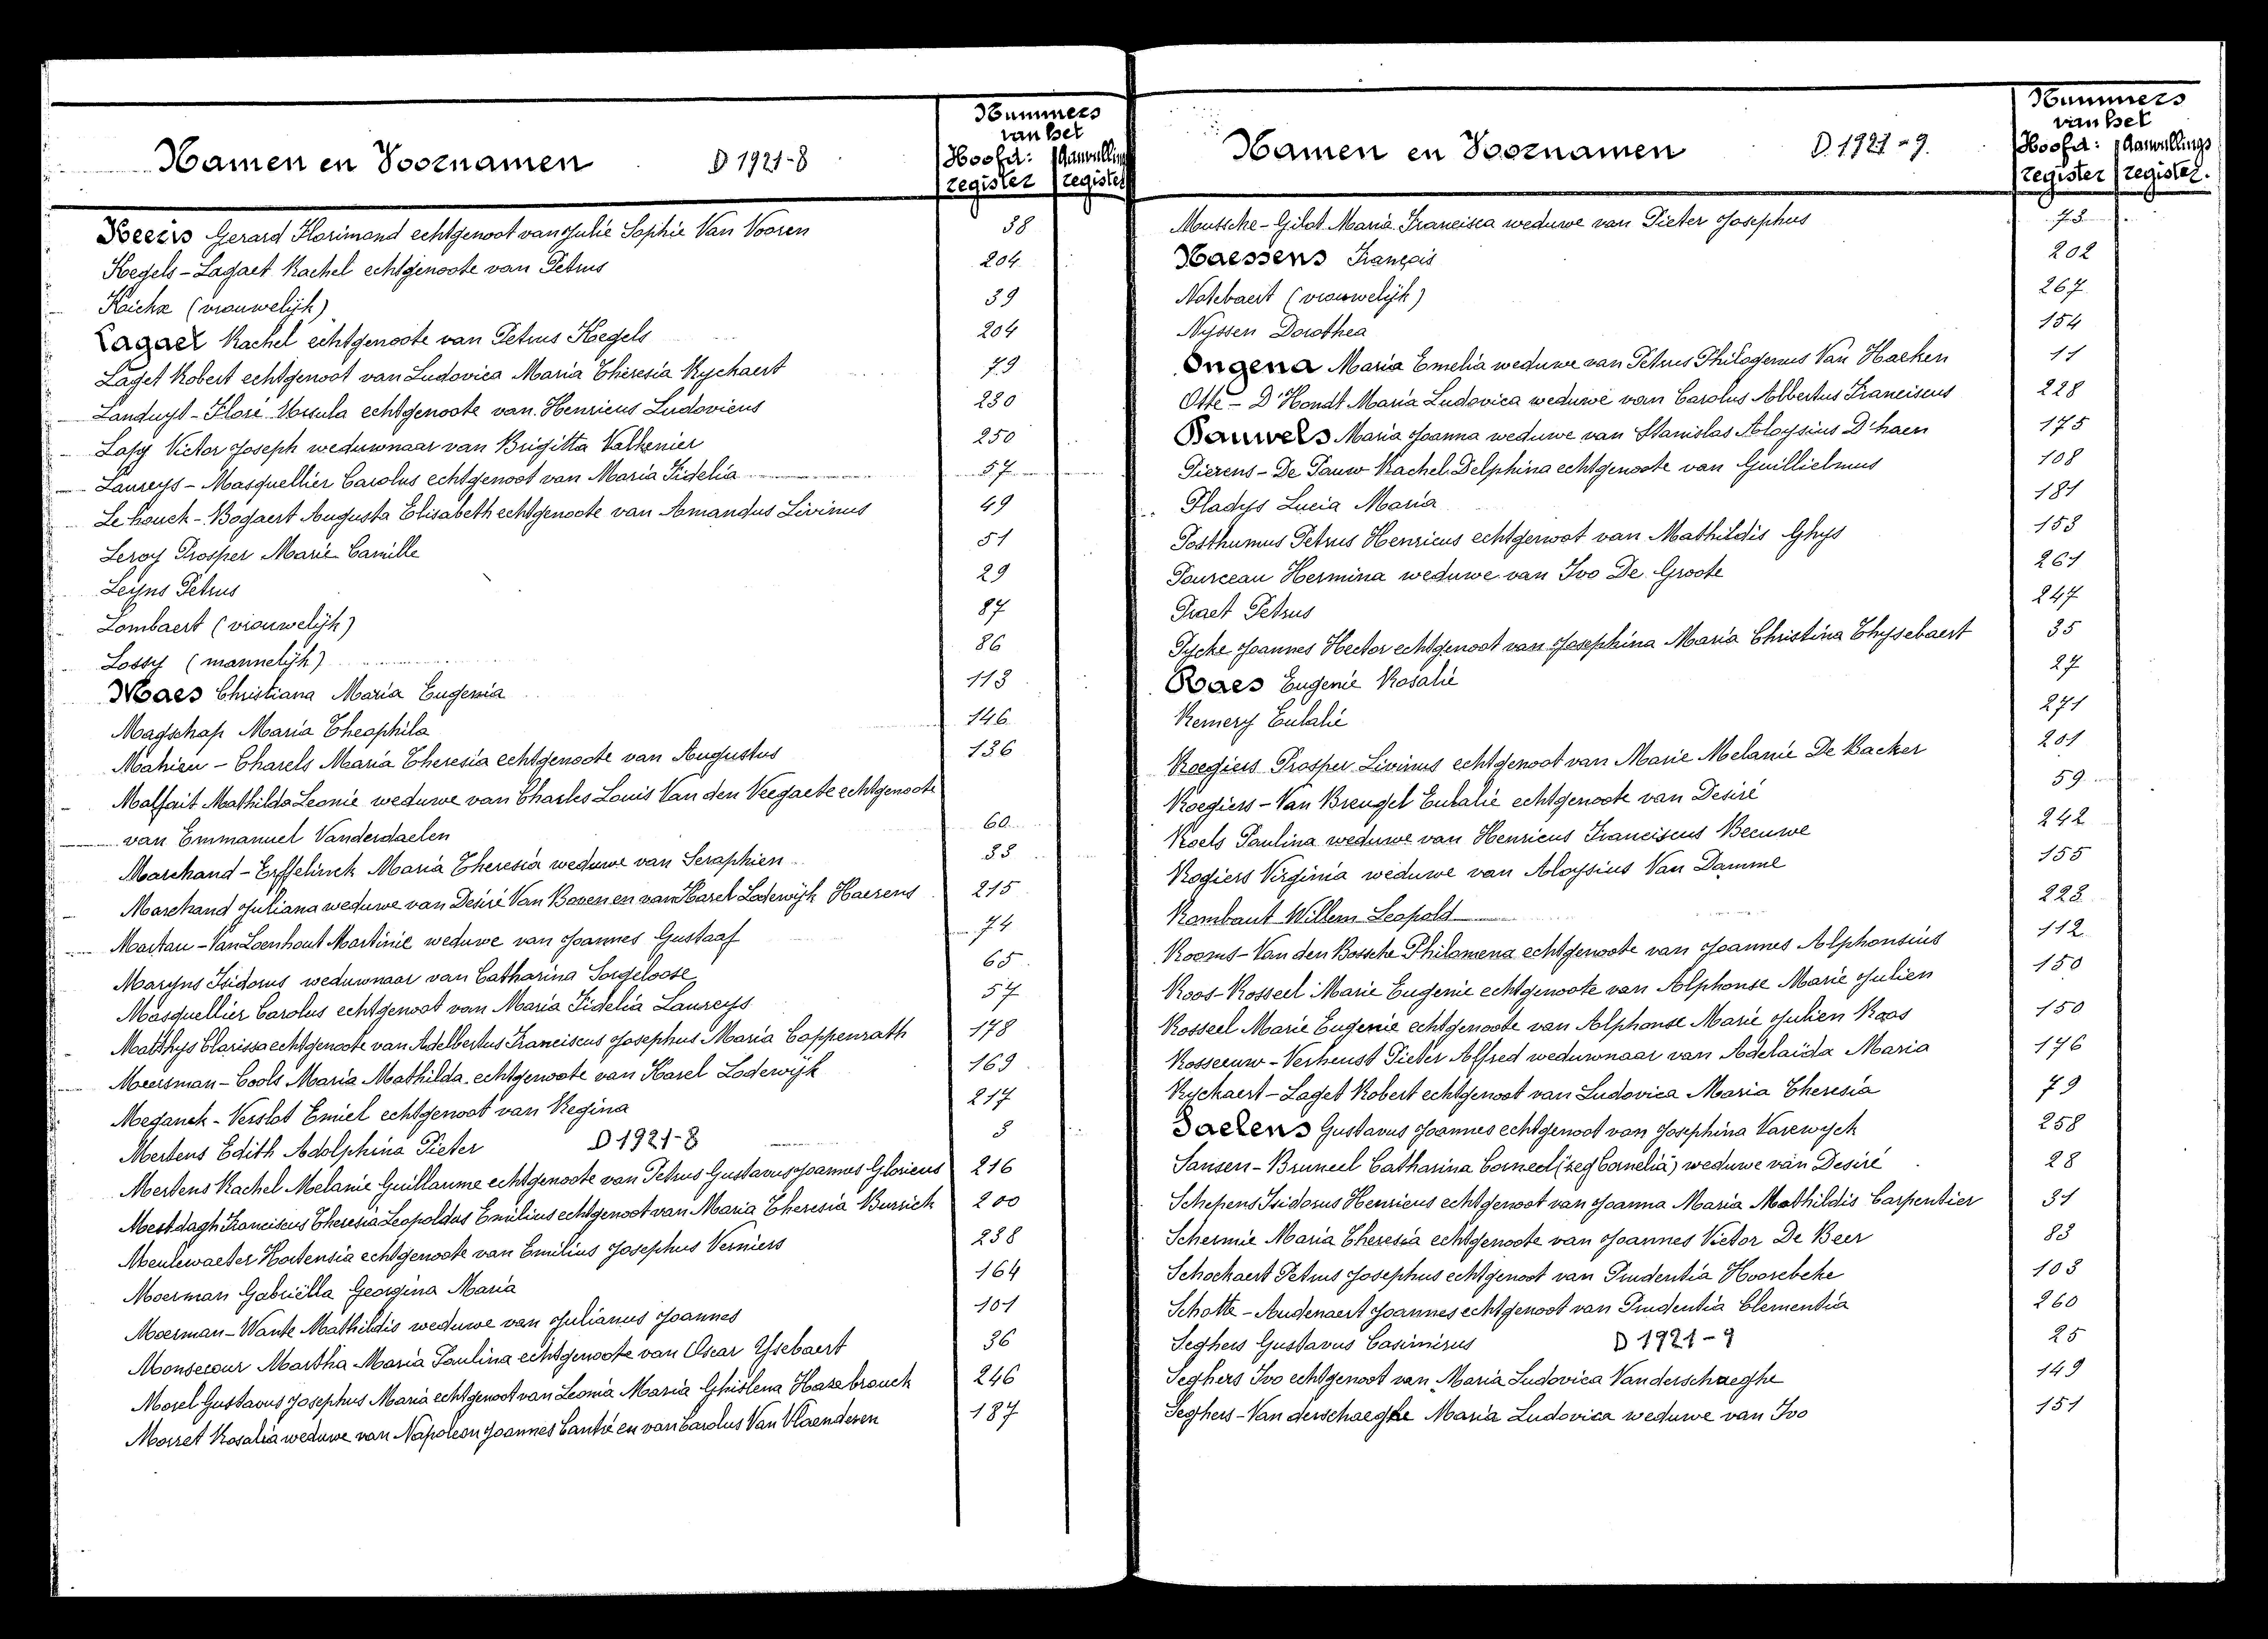 Namen en Voornamen D 1921-8
Nummers
van het
Hoofd: Aanvulling
register register
Heeirs Gerard Florimond echtgenoot van Julie Sophie Van Vooren 38
Kegels - Lagaet Rachel echtgenoote van Petrus 204
Kaichx (vrouwelijk) 39
Lagaet Rachel echtgenoote van Petrus Kegels 204
Laget Robert echtgenoot van Ludovica Maria Theresia Ryckaert 79
Landuyt - Floré Ursula echtgenoote van Henricus Ludovicus 230
Lafy Victor Joseph weduwnaar van Brigitta Valkenier 250
Laureys - Masquellier Carolus echtgenoot van Maria Fidelia 57
Le houck - Bogaert Augusta Elisabeth echtgenoote van Amandus Livinus 49
Leroy Prosper Marie Camille 51
Leyns Petrus 29
Lombaert (vrouwelijk) 87
Lossy (mannelijk) 86
Maes Christiana Maria Eugenia 113
Magschap Maria Theophila 146
Mahieu - Charels Maria Theresia echtgenoote van Augustus 136
Malfait Mathilda Leonie weduwe van Charles Louis Van den Veegaete echtgenoote
van Emmanuel Vanderdaelen 60
Marchand - Erffelinck Maria Theresia weduwe van Seraphien 33
Marchand Juliana weduwe van Desiré Van Boven en van Karel Lodewijk Haerens 215
Martau - Van Loenhout Martinie weduwe van Joannes Gustaaf 74
Maryns Isidorus weduwnaar van Catharina Sorgeloose 65
Masquellier Carolus echtgenoot van Maria Fidelia Laureys 57
Matthys Clarissa echtgenoote van Adelbertus Franciscus Josephus Maria Coppenrath 178
Meersman - Cools Maria Mathilda echtgenoote van Karel Lodewijk 169
Meganck - Verslot Emiel echtgenoot van Regina 217
Mertens Edith Adolphina Pieter D 1921-8 3
Mertens Rachel Melanie Guillaume echtgenoote van Petrus Gustavus Joannes Glorieus 216
Mestdagh Franciscus Theresia Leopoldus Emilius echtgenoot van Maria Theresia Burrick 200
Meulewaeter Hortensia echtgenoote van Emilius Josephus Verniers 238
Moerman Gabriëlla Georgina Maria 164
Moerman - Wante Mathildis weduwe van Julianus Joannes 101
Monsecour Martha Maria Paulina echtgenoote van Oscar Ysebaert 36
Morel Gustavus Josephus Maria echtgenoot van Leonia Maria Ghislena Hazebrouck 246
Morret Rosalia weduwe van Napoleon Joannes Cantré en van Carolus Van Vlaenderen 187
Namen en Voornamen D 1921-9.
Nummers
van het
Hoofd: Aanvullings
register register.
Mutsche - Gilot Maria Francisca weduwe van Pieter Josephus 73
Naessens François 202
Notebaert (vrouwelijk) 267
Nyssen Dorothea 154
Ongena Maria Emelia weduwe van Petrus Philogenus Van Haeken 11
Otte - D'Hondt Maria Ludovica weduwe van Carolus Albertus Franciscus 228
Pauwels Maria Joanna weduwe van Stanislas Aloysius D'haen 175
Pierens - De Pauw Rachel Delphina echtgenoote van Guillielmus 108
Pladys Lucia Maria 181
Posthumus Petrus Henricus echtgenoot van Mathildis Ghys 153
Pourceau Hermina weduwe van Ivo De Groote 261
Praet Petrus 247
Pycke Joannes Hector echtgenoot van Josephina Maria Christina Thysebaert 35
Raes Eugenie Rosalie 27
Remery Eulalie 271
Roegiers Prosper Livinus echtgenoot van Marie Melanie De Backer 201
Roegiers - Van Breugel Eulalie echtgenoote van Desiré 59
Roels Paulina weduwe van Henricus Franciscus Beeuwe 242
Rogiers Virginia weduwe van Aloysius Van Damme 155
Rombaut Willem Leopold 223
Rooms - Van den Bossche Philomena echtgenoote van Joannes Alphonsius 112
Roos - Rosseel Marie Eugenie echtgenoote van Alphonse Marie Julien 150
Rosseel Marie Eugenie echtgenoote van Alphonse Marie Julien Roos 150
Rosseeuw - Verheust Pieter Alfred weduwnaar van Adelaïda Maria 176
Ryckaert - Laget Robert echtgenoot van Ludovica Maria Theresia 79
Saelens Gustavus Joannes echtgenoot van Josephina Varewyck 258
Sansen - Bruneel Catharina Corneel (zeg Cornelia) weduwe van Desiré 28
Schepens Isidorus Henricus echtgenoot van Joanna Maria Mathildis Carpentier 31
Schermie Maria Theresia echtgenoote van Joannes Victor De Beer 83
Schockaert Petrus Josephus echtgenoot van Prudentia Hoorebeke 103
Schotte - Audenaert Joannes echtgenoot van Prudentia Clementia 260
Seghers Gustavus Casimirus D 1921-9 25
Seghers Ivo echtgenoot van Maria Ludovica Vanderschaeghe 149
Seghers - Van derschaeghe Maria Ludovica weduwe van Ivo 151